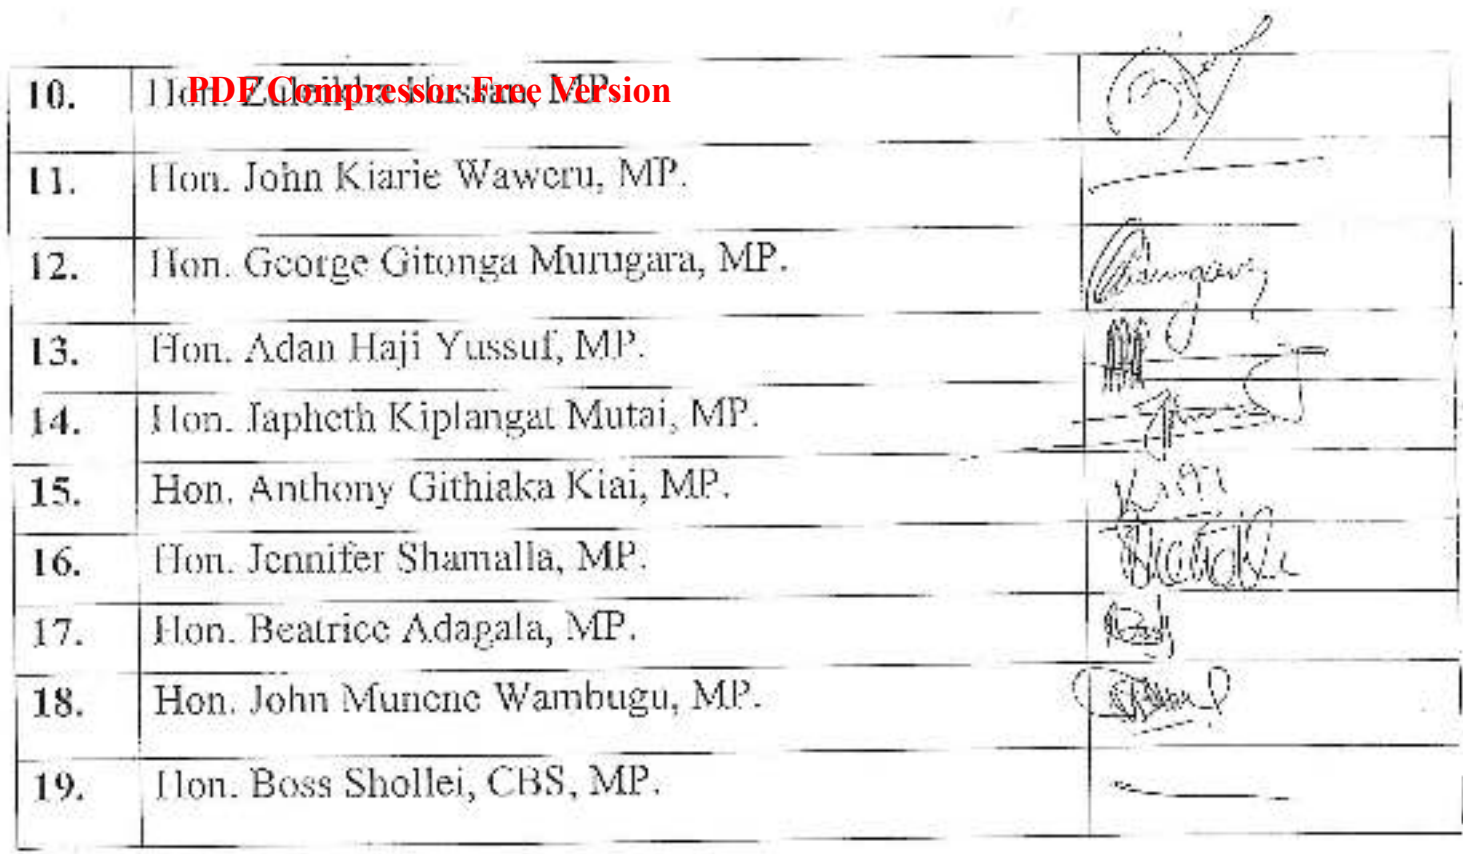 PDF Compressor Free Version
10. Hon. Zuleikha Hassan, MP.
11. Hon. John Kiarie Waweru, MP.
12. Hon. George Gitonga Murugara, MP.
13. Hon. Adan Haji Yussuf, MP.
14. Hon. Japheth Kiplangat Mutai, MP.
15. Hon. Anthony Githiaka Kiai, MP.
16. Hon. Jennifer Shamalla, MP.
17. Hon. Beatrice Adagala, MP.
18. Hon. John Munene Wambugu, MP.
19. Hon. Boss Shollei, CBS, MP.